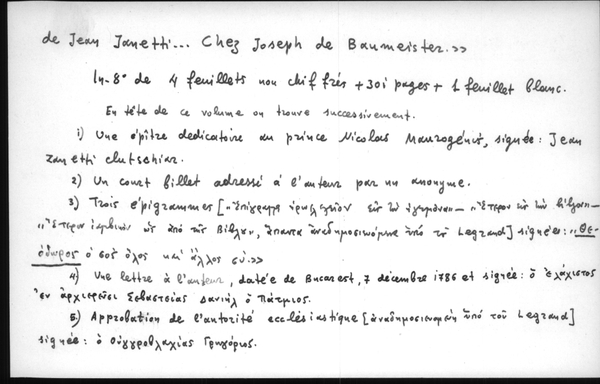 de Jean Zanetti... Chez Joseph de Baumeister.»
In-8° de 4 feuillets non chiffrés + 301 pages + 1 feuillet blanc.
En tête de ce volume on trouve successivement.
1) Une épître dedicatoire au prince Nicolas Maurogénis, signée: Jean
Zanetti clutschiar.
2) Un court billet adressé à l'auteur par un anonyme.
3) Trois épigrammes [„Ἐπίγραμμα ἡρωελεγεῖον εἰς τὸν ἡγεμόνα"— „Ἕτερον εἰς τὴν βίβλον"—
„Ἕτερον ἰαμβικὸν ὡς ἀπὸ τῆς βίβλου, ἅπαντα ἀναδημοσιευόμενα ὑπὸ τοῦ Legrand] signées: „Θε-
όδωρος ὁ σος ὅλος καὶ ἄλλος σύ.»
4) Une lettre à l'auteur, datée de Bucarest, 7 décembre 1786 et signée: ὁ ἐλάχιστος
ἐν ἀρχιερεῦσι Σεβαστείας Δανιὴλ ὁ Πάτμιος.
5) Approbation de l'autorité ecclésiastique [ἀναδημοσιευομένη ὑπὸ τοῦ Legrand]
signée: ὁ Οὑγγροβλαχίας Γρηγόριος.